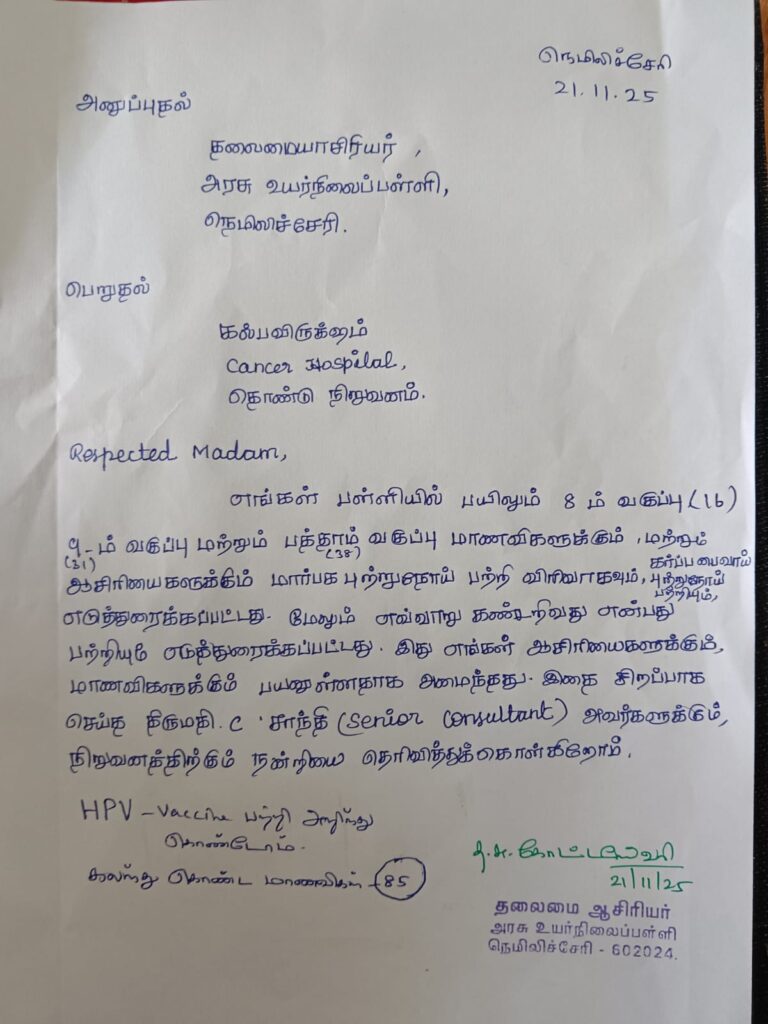 நெமிலிச்சேரி
21.11.25
அனுப்புதல்
தலைமையாசிரியர்,
அரசு உயர்நிலைப்பள்ளி,
நெமிலிச்சேரி.
பெறுதல்
கல்பவிருக்ஷம்
Cancer Hospital,
தொண்டு நிறுவனம்.
Respected Madam,
எங்கள் பள்ளியில் பயிலும் 8 ம் வகுப்பு (16)
9-ம் வகுப்பு மற்றும் பத்தாம் வகுப்பு மாணவிகளுக்கும், மற்றும்
(31) (38) கர்ப்பபைவாய்
ஆசிரியைகளுக்கும் மார்பக புற்றுநோய் பற்றி விரிவாகவும், புற்றுநோய்
பற்றியும்,
எடுத்துரைக்கப்பட்டது. மேலும் எவ்வாறு கண்டறிவது என்பது
பற்றியும் எடுத்துரைக்கப்பட்டது. இது எங்கள் ஆசிரியைகளுக்கும்,
மாணவிகளுக்கும் பயனுள்ளதாக அமைந்தது. இதை சிறப்பாக
செய்த திருமதி. C. சாந்தி (Senior Consultant) அவர்களுக்கும்,
நிறுவனத்திற்கும் நன்றியை தெரிவித்துக்கொள்கிறோம்.
HPV - Vaccine பற்றி அறிந்து
கொண்டோம்.
கலந்து கொண்ட மாணவிகள் - 85
21/11/25
தலைமை ஆசிரியர்
அரசு உயர்நிலைப்பள்ளி
நெமிலிச்சேரி - 602024.